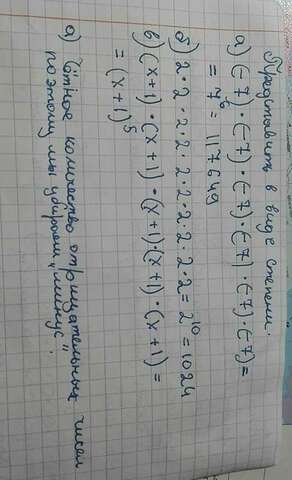 Представить в виде степени.
а) (-7)·(-7)·(-7)·(-7)·(-7)·(-7)=
= 7⁶ = 117649
б) 2·2·2·2·2·2·2·2·2·2=2¹⁰=1024
в) (x+1)·(x+1)·(x+1)·(x+1)·(x+1)=
= (x+1)⁵
а) Чётное количество отрицательных чисел
поэтому мы убираем „минус".